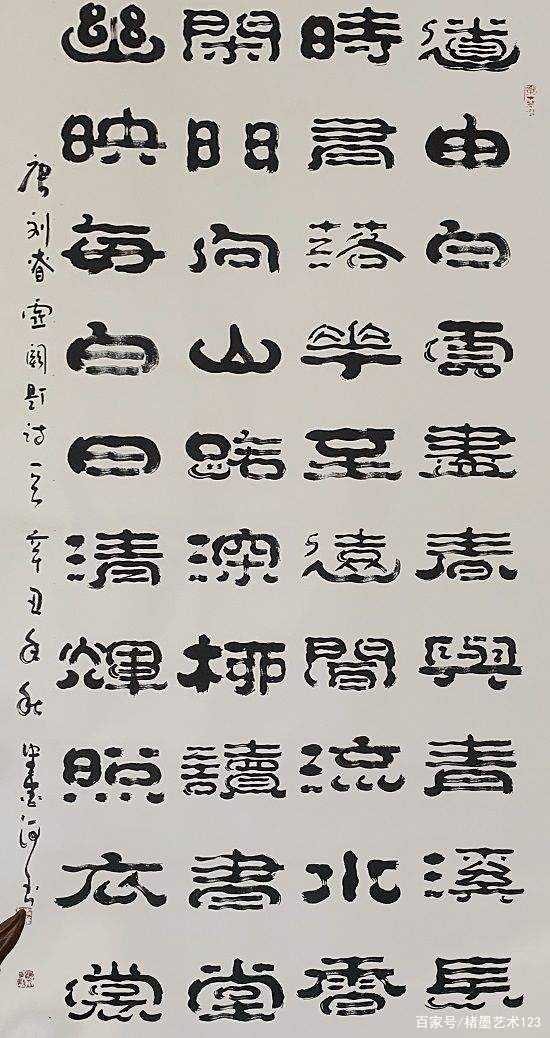 道由白雲盡春與青溪長
時有落華至遠聞流水香
閑門向山路深柳讀書堂
幽映每白日清輝照衣裳
唐刘眘虚阙题诗一首辛丑年秋
百家号/楮墨艺术123